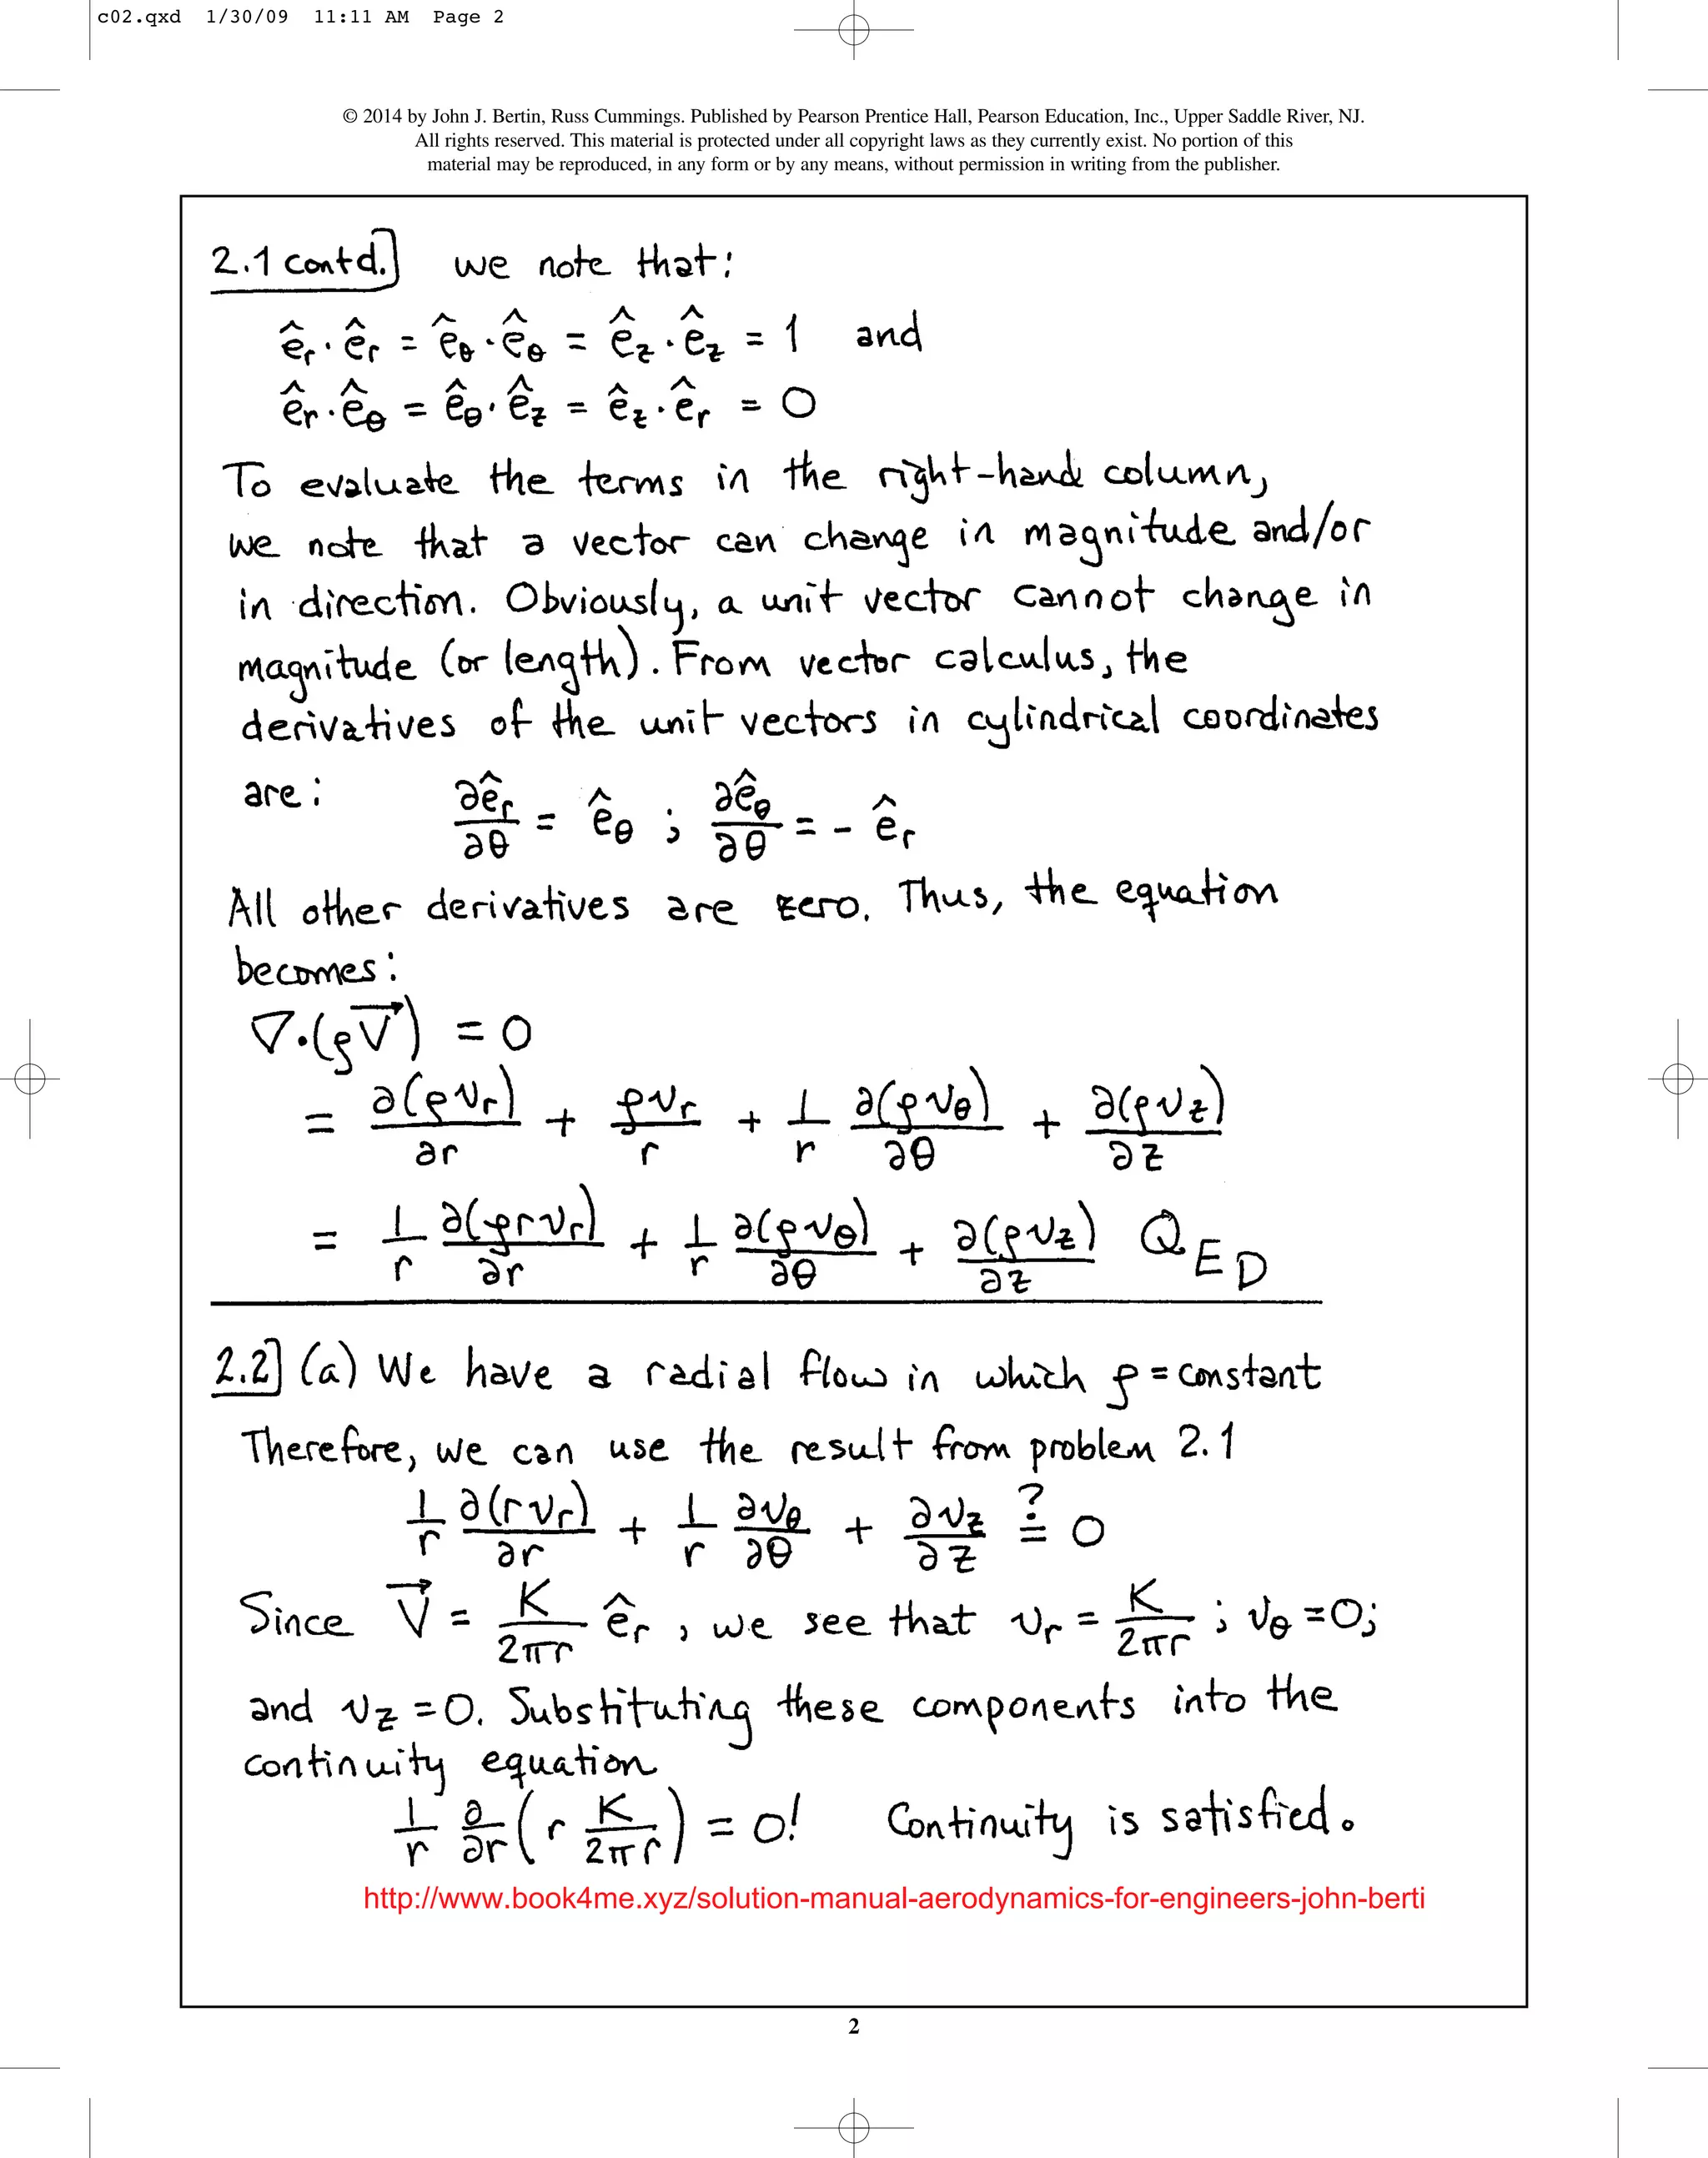 c02.qxd 1/30/09 11:11 AM Page 2
© 2014 by John J. Bertin, Russ Cummings. Published by Pearson Prentice Hall, Pearson Education, Inc., Upper Saddle River, NJ.
All rights reserved. This material is protected under all copyright laws as they currently exist. No portion of this
material may be reproduced, in any form or by any means, without permission in writing from the publisher.
2.1 contd.] we note that:
ê_r · ê_r = ê_θ · ê_θ = ê_z · ê_z = 1 and
ê_r · ê_θ = ê_θ · ê_z = ê_z · ê_r = 0
To evaluate the terms in the right-hand column,
we note that a vector can change in magnitude and/or
in direction. Obviously, a unit vector cannot change in
magnitude (or length). From vector calculus, the
derivatives of the unit vectors in cylindrical coordinates
are: ∂ê_r/∂θ = ê_θ ; ∂ê_θ/∂θ = - ê_r
All other derivatives are zero. Thus, the equation
becomes:
∇·(ρV⃗) = 0
= ∂(ρv_r)/∂r + ρv_r/r + 1/r ∂(ρv_θ)/∂θ + ∂(ρv_z)/∂z
= 1/r ∂(ρrv_r)/∂r + 1/r ∂(ρv_θ)/∂θ + ∂(ρv_z)/∂z QED
2.2] (a) We have a radial flow in which ρ = constant
Therefore, we can use the result from problem 2.1
1/r ∂(rv_r)/∂r + 1/r ∂v_θ/∂θ + ∂v_z/∂z ≟ 0
Since V⃗ = K/2πr ê_r , we see that v_r = K/2πr ; v_θ = 0;
and v_z = 0. Substituting these components into the
continuity equation
1/r ∂/∂r (r K/2πr) = 0! Continuity is satisfied.
http://www.book4me.xyz/solution-manual-aerodynamics-for-engineers-john-berti
2